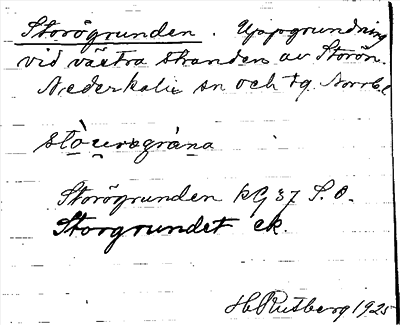 Storögrunden. Uppgrundning
vid västra stranden av Storön.
Nederkalix sn och tg. Norrb.l

stòuragràna

Storögrunden kG 37 S.O.
Storgrundet ek.

H. Rutberg 1925